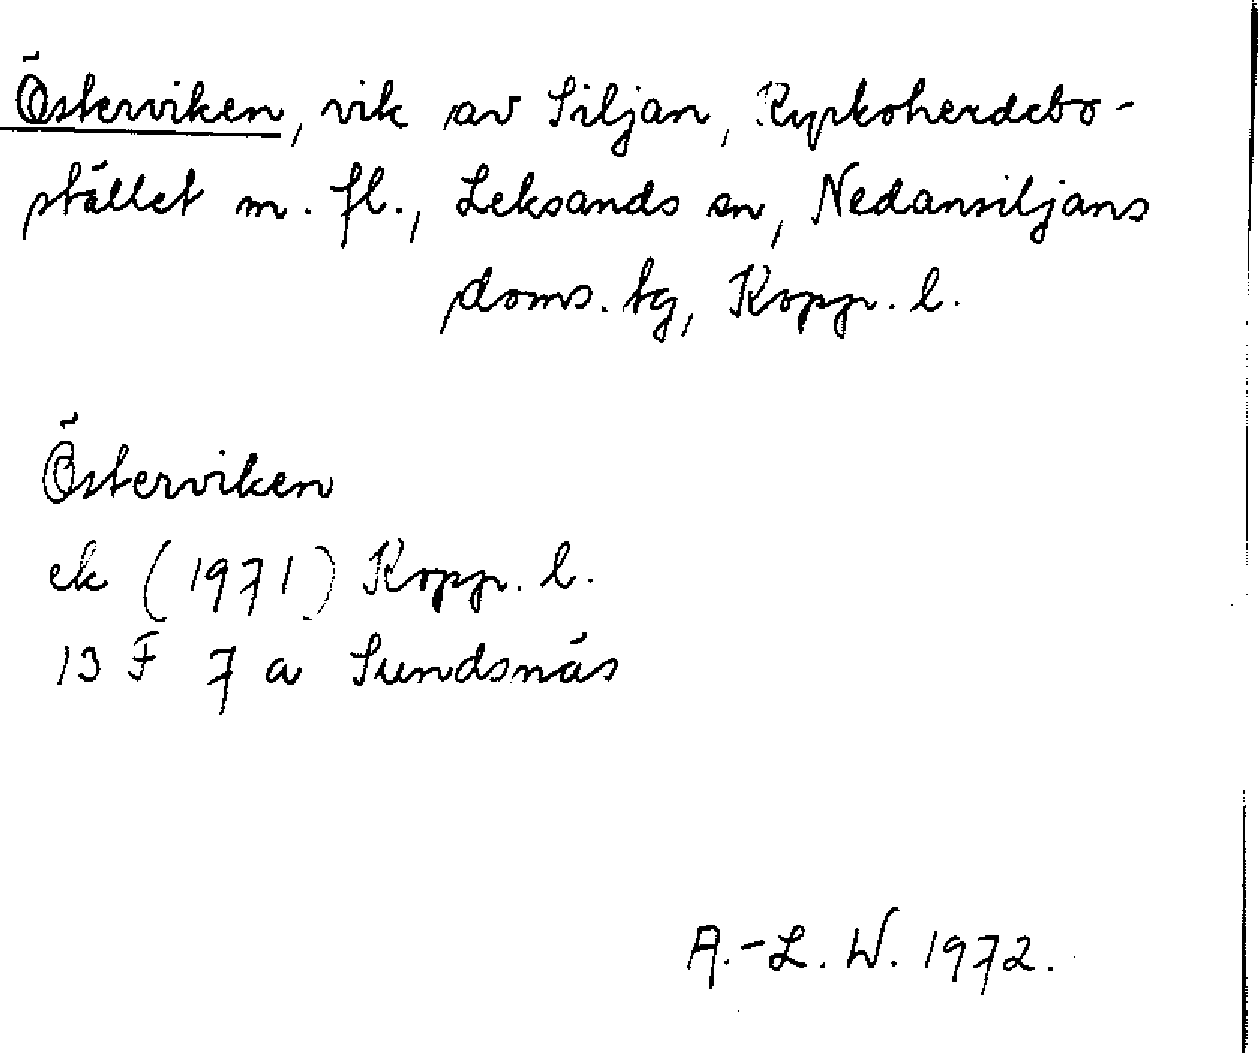 Österviken, vik av Siljan, Kyrkoherdebo-
stället m. fl., Leksands sn, Nedansiljans
doms. tg, Kopp. l.
Österviken
ek (1971) Kopp. l.
13 F 7 a Sundsnäs
A.-L. W. 1972.